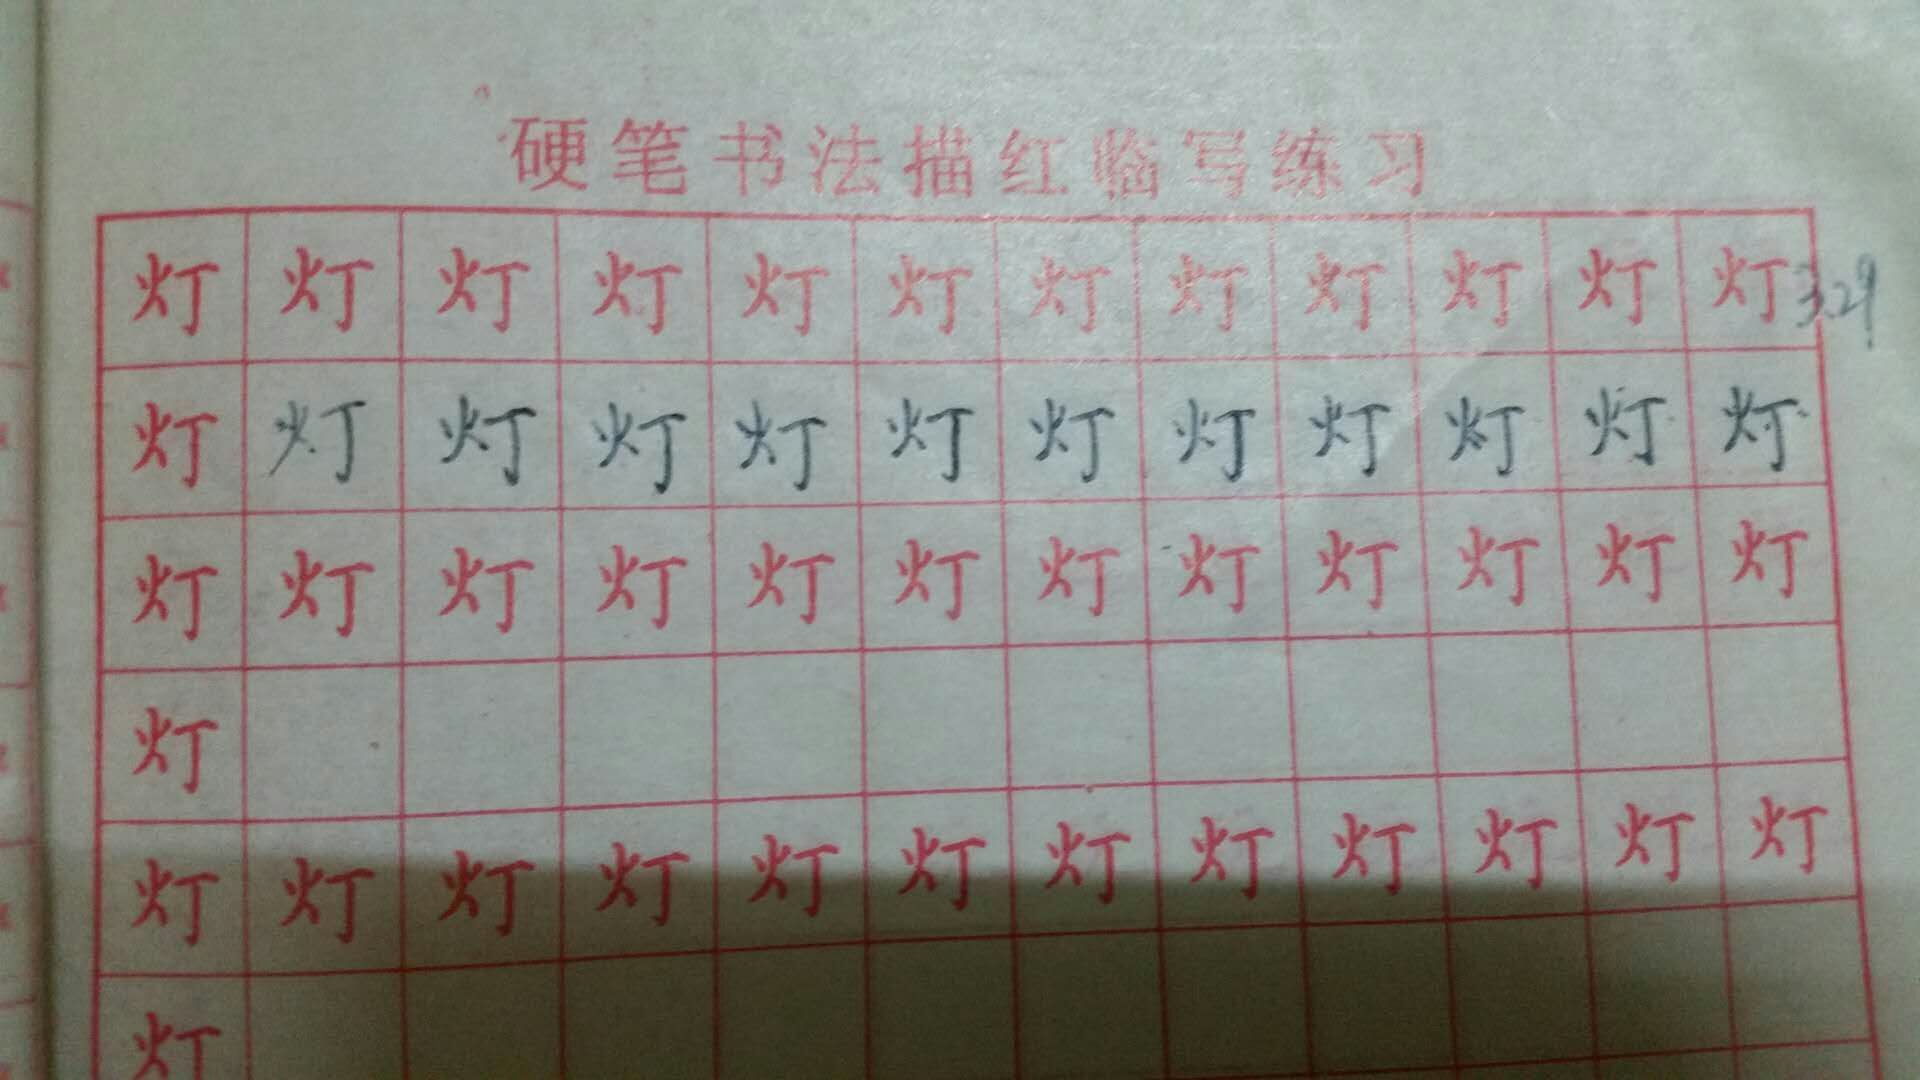 硬笔书法描红临写练习
灯灯灯灯灯灯灯灯灯灯灯灯 3.29
灯灯灯灯灯灯灯灯灯灯灯灯
灯灯灯灯灯灯灯灯灯灯灯灯
灯
灯灯灯灯灯灯灯灯灯灯灯灯
灯